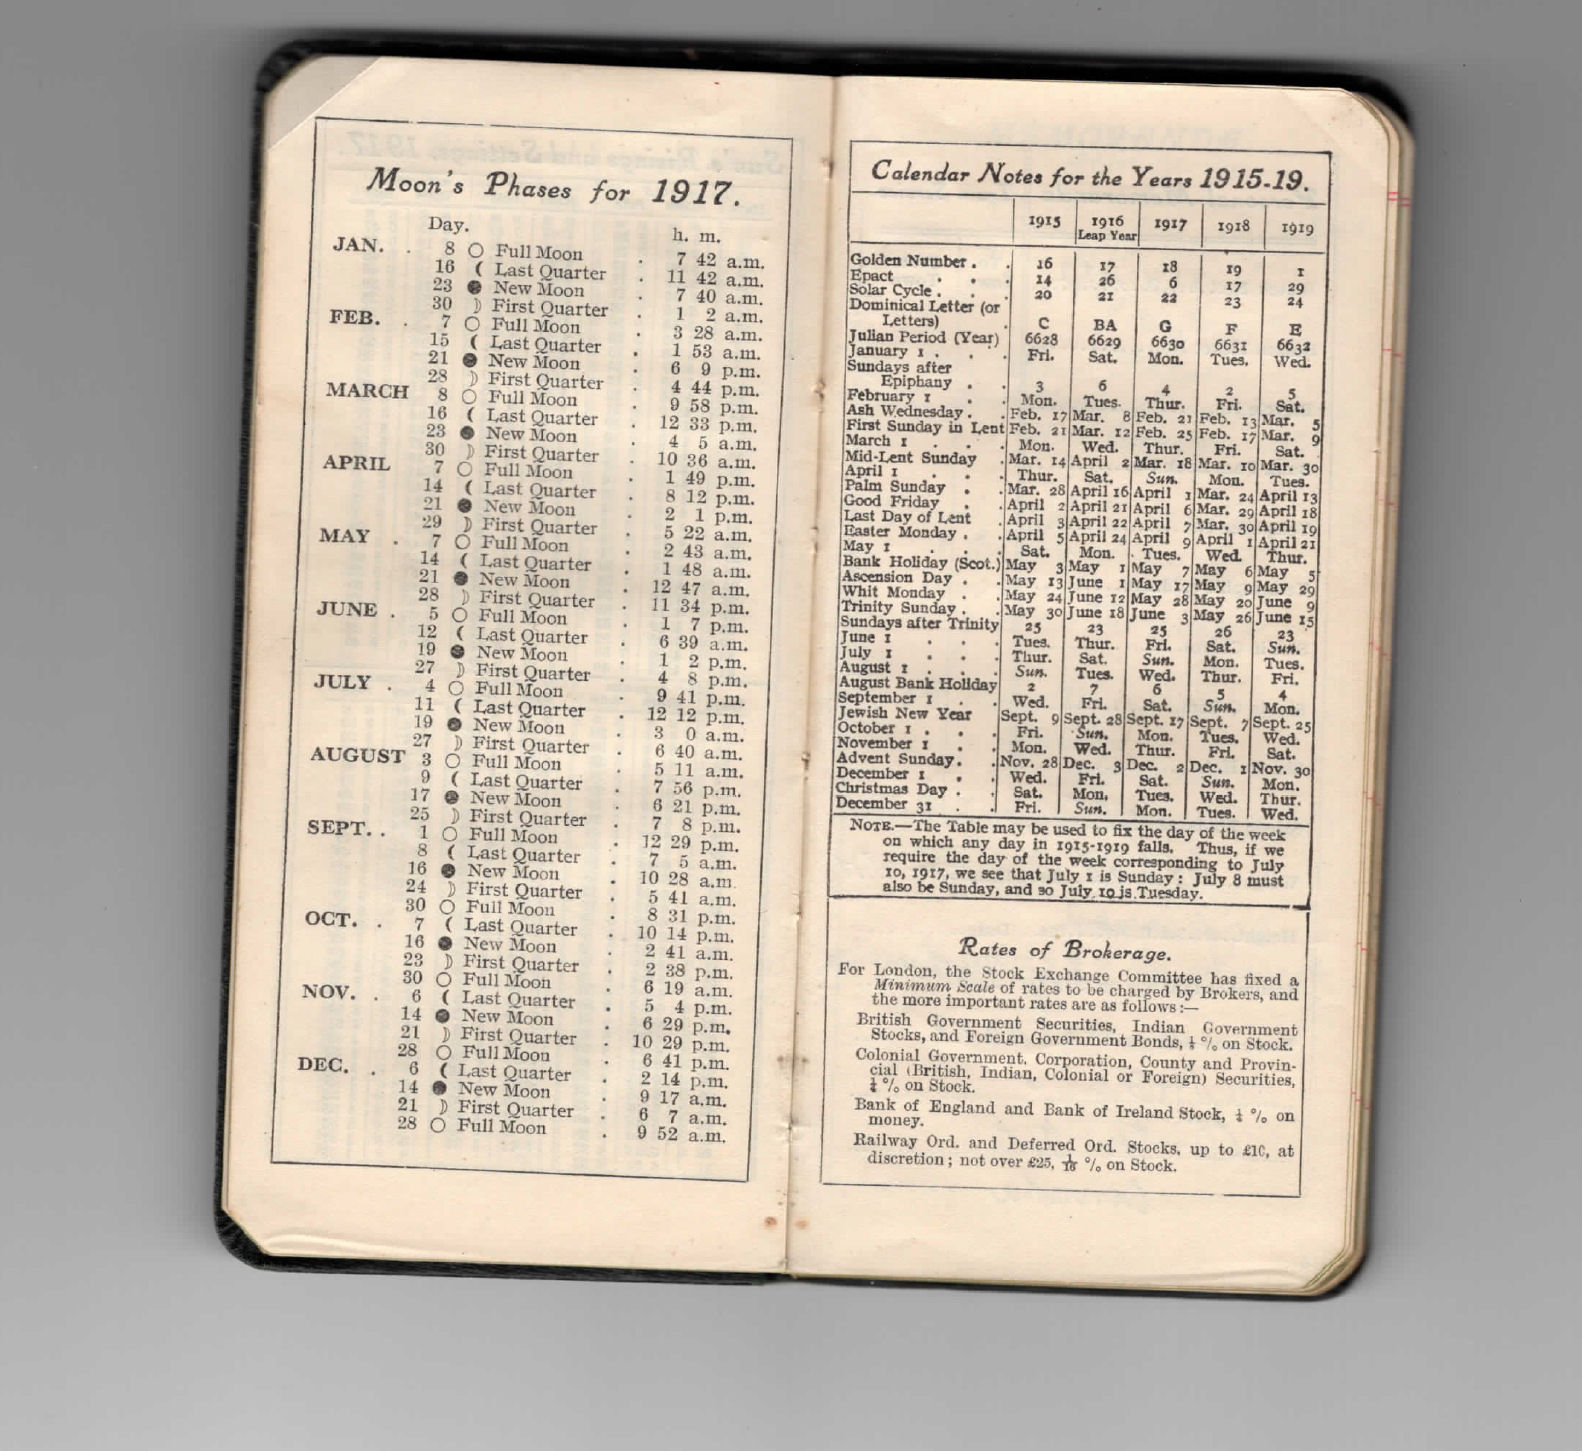 Moon's Phases for 1917.
Day. h. m.
JAN. . 8 ○ Full Moon . 7 42 a.m.
16 ☾ Last Quarter . 11 42 a.m.
23 ● New Moon . 7 40 a.m.
30 ☽ First Quarter . 1 2 a.m.
FEB. . 7 ○ Full Moon . 3 28 a.m.
15 ☾ Last Quarter . 1 53 a.m.
21 ● New Moon . 6 9 p.m.
28 ☽ First Quarter . 4 44 p.m.
MARCH 8 ○ Full Moon . 9 58 p.m.
16 ☾ Last Quarter . 12 33 p.m.
23 ● New Moon . 4 5 a.m.
30 ☽ First Quarter . 10 36 a.m.
APRIL 7 ○ Full Moon . 1 49 p.m.
14 ☾ Last Quarter . 8 12 p.m.
21 ● New Moon . 2 1 p.m.
29 ☽ First Quarter . 5 22 a.m.
MAY . 7 ○ Full Moon . 2 43 a.m.
14 ☾ Last Quarter . 1 48 a.m.
21 ● New Moon . 12 47 a.m.
28 ☽ First Quarter . 11 34 p.m.
JUNE . 5 ○ Full Moon . 1 7 p.m.
12 ☾ Last Quarter . 6 39 a.m.
19 ● New Moon . 1 2 p.m.
27 ☽ First Quarter . 4 8 p.m.
JULY . 4 ○ Full Moon . 9 41 p.m.
11 ☾ Last Quarter . 12 12 p.m.
19 ● New Moon . 3 0 a.m.
27 ☽ First Quarter . 6 40 a.m.
AUGUST 3 ○ Full Moon . 5 11 a.m.
9 ☾ Last Quarter . 7 56 p.m.
17 ● New Moon . 6 21 p.m.
25 ☽ First Quarter . 7 8 p.m.
SEPT. . 1 ○ Full Moon . 12 29 p.m.
8 ☾ Last Quarter . 7 5 a.m.
16 ● New Moon . 10 28 a.m.
24 ☽ First Quarter . 5 41 a.m.
30 ○ Full Moon . 8 31 p.m.
OCT. . 7 ☾ Last Quarter . 10 14 p.m.
16 ● New Moon . 2 41 a.m.
23 ☽ First Quarter . 2 38 p.m.
30 ○ Full Moon . 6 19 a.m.
NOV. . 6 ☾ Last Quarter . 5 4 p.m.
14 ● New Moon . 6 29 p.m.
21 ☽ First Quarter . 10 29 p.m.
28 ○ Full Moon . 6 41 p.m.
DEC. . 6 ☾ Last Quarter . 2 14 p.m.
14 ● New Moon . 9 17 a.m.
21 ☽ First Quarter . 6 7 a.m.
28 ○ Full Moon . 9 52 a.m.
Calendar Notes for the Years 1915-19.
1915 1916 1917 1918 1919
Leap Year
Golden Number . . 16 17 18 19 1
Epact . . . 14 26 6 17 29
Solar Cycle . . . 20 21 22 23 24
Dominical Letter (or
Letters) . C BA G F E
Julian Period (Year) 6628 6629 6630 6631 6632
January 1 . . . Fri. Sat. Mon. Tues. Wed.
Sundays after
Epiphany . . 3 6 4 2 5
February 1 . . Mon. Tues. Thur. Fri. Sat.
Ash Wednesday . . Feb. 17 Mar. 8 Feb. 21 Feb. 13 Mar. 5
First Sunday in Lent Feb. 21 Mar. 12 Feb. 25 Feb. 17 Mar. 9
March 1 . . . Mon. Wed. Thur. Fri. Sat.
Mid-Lent Sunday . Mar. 14 April 2 Mar. 18 Mar. 10 Mar. 30
April 1 . . . Thur. Sat. Sun. Mon. Tues.
Palm Sunday . . Mar. 28 April 16 April 1 Mar. 24 April 13
Good Friday . . April 2 April 21 April 6 Mar. 29 April 18
Last Day of Lent . April 3 April 22 April 7 Mar. 30 April 19
Easter Monday . . April 5 April 24 April 9 April 1 April 21
May 1 . . . Sat. Mon. Tues. Wed. Thur.
Bank Holiday (Scot.) May 3 May 1 May 7 May 6 May 5
Ascension Day . . May 13 June 1 May 17 May 9 May 29
Whit Monday . . May 24 June 12 May 28 May 20 June 9
Trinity Sunday . . May 30 June 18 June 3 May 26 June 15
Sundays after Trinity 25 23 25 26 23
June 1 . . . Tues. Thur. Fri. Sat. Sun.
July 1 . . . Thur. Sat. Sun. Mon. Tues.
August 1 . . . Sun. Tues. Wed. Thur. Fri.
August Bank Holiday 2 7 6 5 4
September 1 . . Wed. Fri. Sat. Sun. Mon.
Jewish New Year Sept. 9 Sept. 28 Sept. 17 Sept. 7 Sept. 25
October 1 . . . Fri. Sun. Mon. Tues. Wed.
November 1 . . Mon. Wed. Thur. Fri. Sat.
Advent Sunday . . Nov. 28 Dec. 3 Dec. 2 Dec. 1 Nov. 30
December 1 . . Wed. Fri. Sat. Sun. Mon.
Christmas Day . . Sat. Mon. Tues. Wed. Thur.
December 31 . . Fri. Sun. Mon. Tues. Wed.
NOTE.—The Table may be used to fix the day of the week
on which any day in 1915-1919 falls. Thus, if we
require the day of the week corresponding to July
10, 1917, we see that July 1 is Sunday: July 8 must
also be Sunday, and so July 10 is Tuesday.
Rates of Brokerage.
For London, the Stock Exchange Committee has fixed a
Minimum Scale of rates to be charged by Brokers, and
the more important rates are as follows:—
British Government Securities, Indian Government
Stocks, and Foreign Government Bonds, ⅛ % on Stock.
Colonial Government, Corporation, County and Provin-
cial (British, Indian, Colonial or Foreign) Securities,
¼ % on Stock.
Bank of England and Bank of Ireland Stock, ¼ % on
money.
Railway Ord. and Deferred Ord. Stocks, up to £10, at
discretion; not over £25, 1/16 % on Stock.